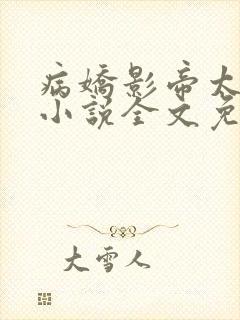 病嬌影帝太
小說全文免
大雪人